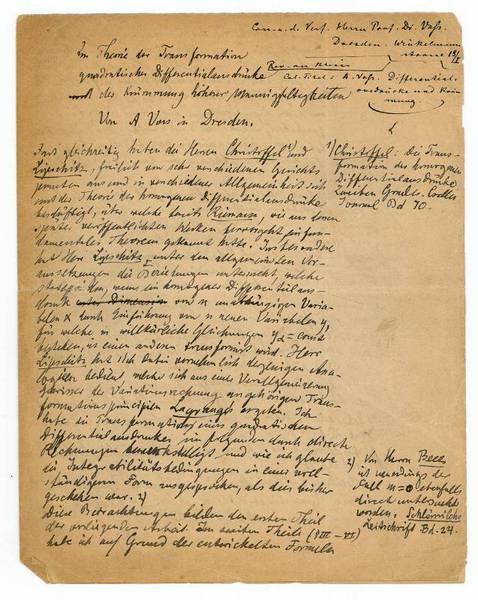 Corr. a. d. Verf. Herrn Prof. Dr. Voss.
Dresden. Winkelmann
strasse
Zur Theorie der Transformation
quadratischer Differentialausdrücke
und der Krümmung höherer Mannigfaltigkeiten
Col. Titel: A. Voss. Differential-
ausdrücke und Krüm-
mung
Von A Voss in Dresden.
Fast gleichzeitig haben die Herren Christoffel 1) und
Lipschitz, freilich von sehr verschiedenen Gesichts
punkten aus und in verschiedener Allgemeinheit sich
mit der Theorie der homogenen Differentialausdrücke
beschäftigt, über welche bereits Riemann, wie aus dessen
später veröffentlichten Werken hervorgeht ein fun-
damentales Theorem gekannt hatte. Insbesondere
hat Herr Lipschitz unter den allgemeinsten Vor-
aussetzungen die Beziehungen untersucht, welche
wenn ein homogener Differentialaus-
druck unter Dimension von n unabhängigen Varia-
beln x durch Einführung von n neuen Variabeln y,
für welche m willkürliche Gleichungen yα = const
bestehen, in einen anderen transformirt wird. Herr
Lipschitz hat sich dabei vornehmlich derjenigen Ana-
logien bedient welche sich aus einer Verallgemeinerung
gewisser der Variationsrechnung angehörigen Trans-
formationsprincipien Lagranges ergeben. Ich
habe die Transformation eines quadratischen
Differentialausdruckes im folgenden durch directe
Rechnungen und wie ich glaube
die Integrabilitätsbedingungen in einer voll-
ständigeren Form ausgesprochen, als dies bisher
geschehen war. 2)
Diese Betrachtungen bilden den ersten Theil
der vorliegenden Arbeit. Im zweiten Theile (VIII – XI)
habe ich auf Grund der entwickelten Formeln
1) Christoffel: Die Trans-
formation der homogenen
Differentialausdrücke
zweiten Grades. Borch.
Journal Bd 70.
2) Von Herrn Beez
ist neuerdings der
Fall m = 0 ebenfalls
direct untersucht
worden. Schlömilchs
Zeitschrift Bd. 24.